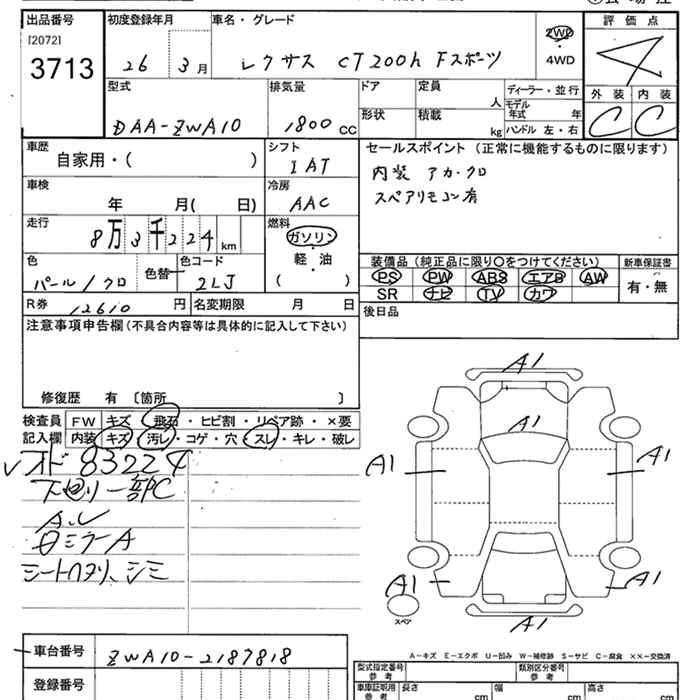 出品番号 初度登録年月 車名・グレード 2WD 評価点
[2072]
3713 26 3月 レクサス CT200h Fスポーツ ・ 4
4WD
型式 排気量 ドア 定員 人 ディーラー・並行 外装 内装
モデル年式 年
DAA-ZWA10 1800 CC 形状 積載 kg ハンドル 左・右 C C
車歴 シフト セールスポイント (正常に機能するものに限ります)
自家用・( ) IAT 内装 アカ・クロ
車検 冷房 スペアリモコン有
年 月( 日) AAC
走行 燃料
8万3千224km ガソリン
軽・油
( )
装備品(純正品に限り〇をつけてください) 新車保証書
色 色替 色コード PS PW ABS エアB AW 有・無
パール/クロ 2LJ SR ナビ TV カワ
R券 12610 円 名変期限 月 日 後日品
注意事項申告欄(不具合内容等は具体的に記入して下さい)
修復歴 有 〔箇所 〕
検査員 FW キズ・飛石・ヒビ割・リペア跡・×要
記入欄 内装 キズ・汚レ・コゲ・穴・スレ・キレ・破レ
オド 83224
下回り一部C
A.レ
ロミラーA
シートハヌリ、シミ
A1
A1
A1 A1
A1 A1
スペア
A1
A-キズ E-エクボ U-凹み W-補修跡 S-サビ C-腐食 ××-交換済
車台番号 ZWA10-2187818
登録番号
型式指定番号 参考 類別区分番号 参考
車庫証明用 参考 長さ cm 幅 cm 高さ cm